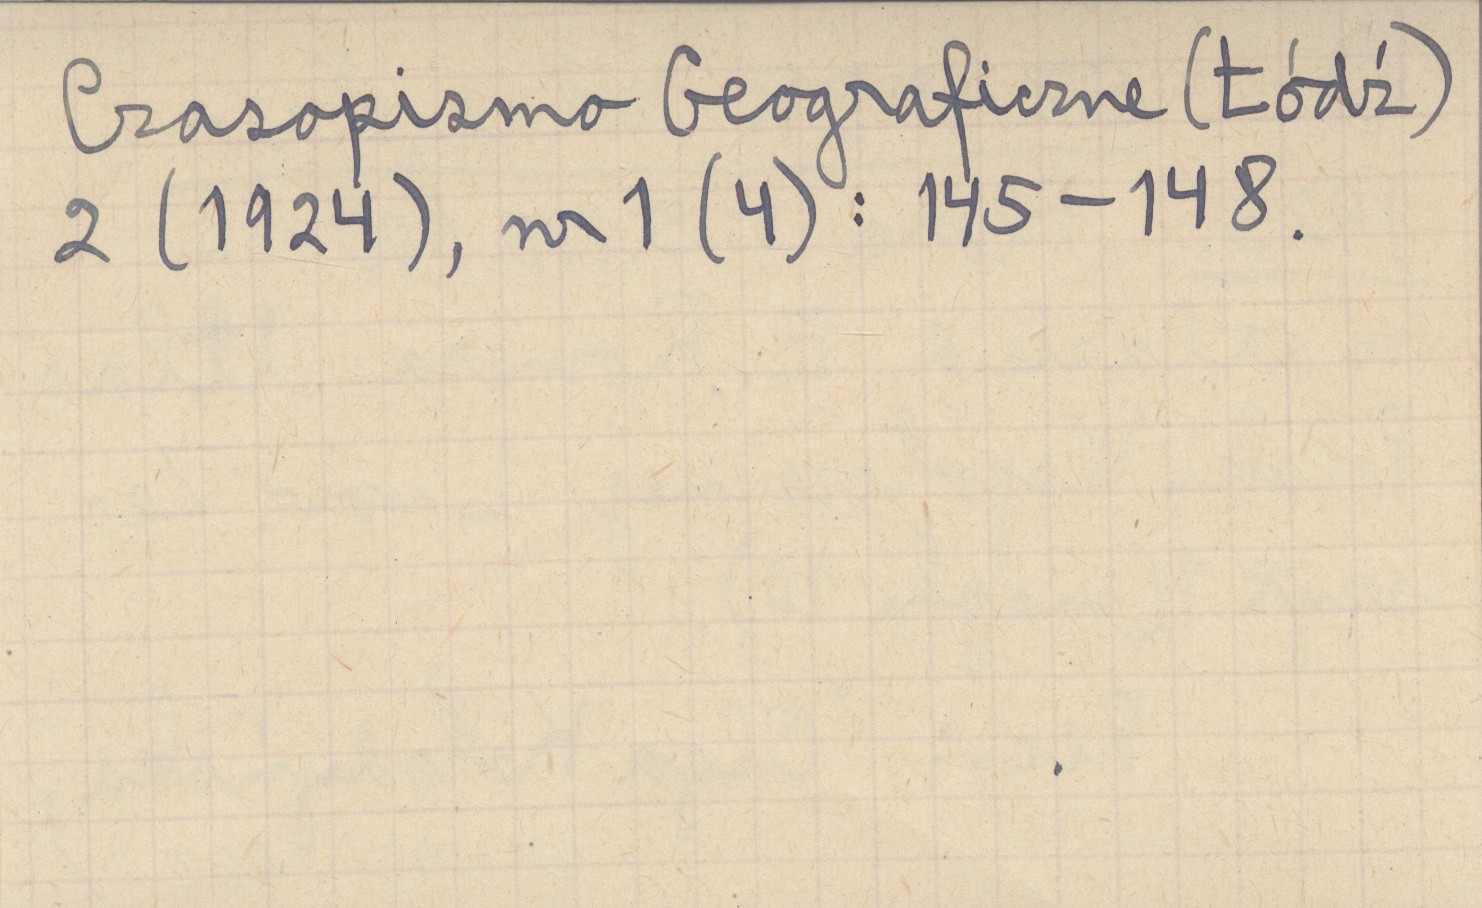 Czasopismo Geograficzne (Łódź)
2 (1924), nr 1 (4): 145-148.